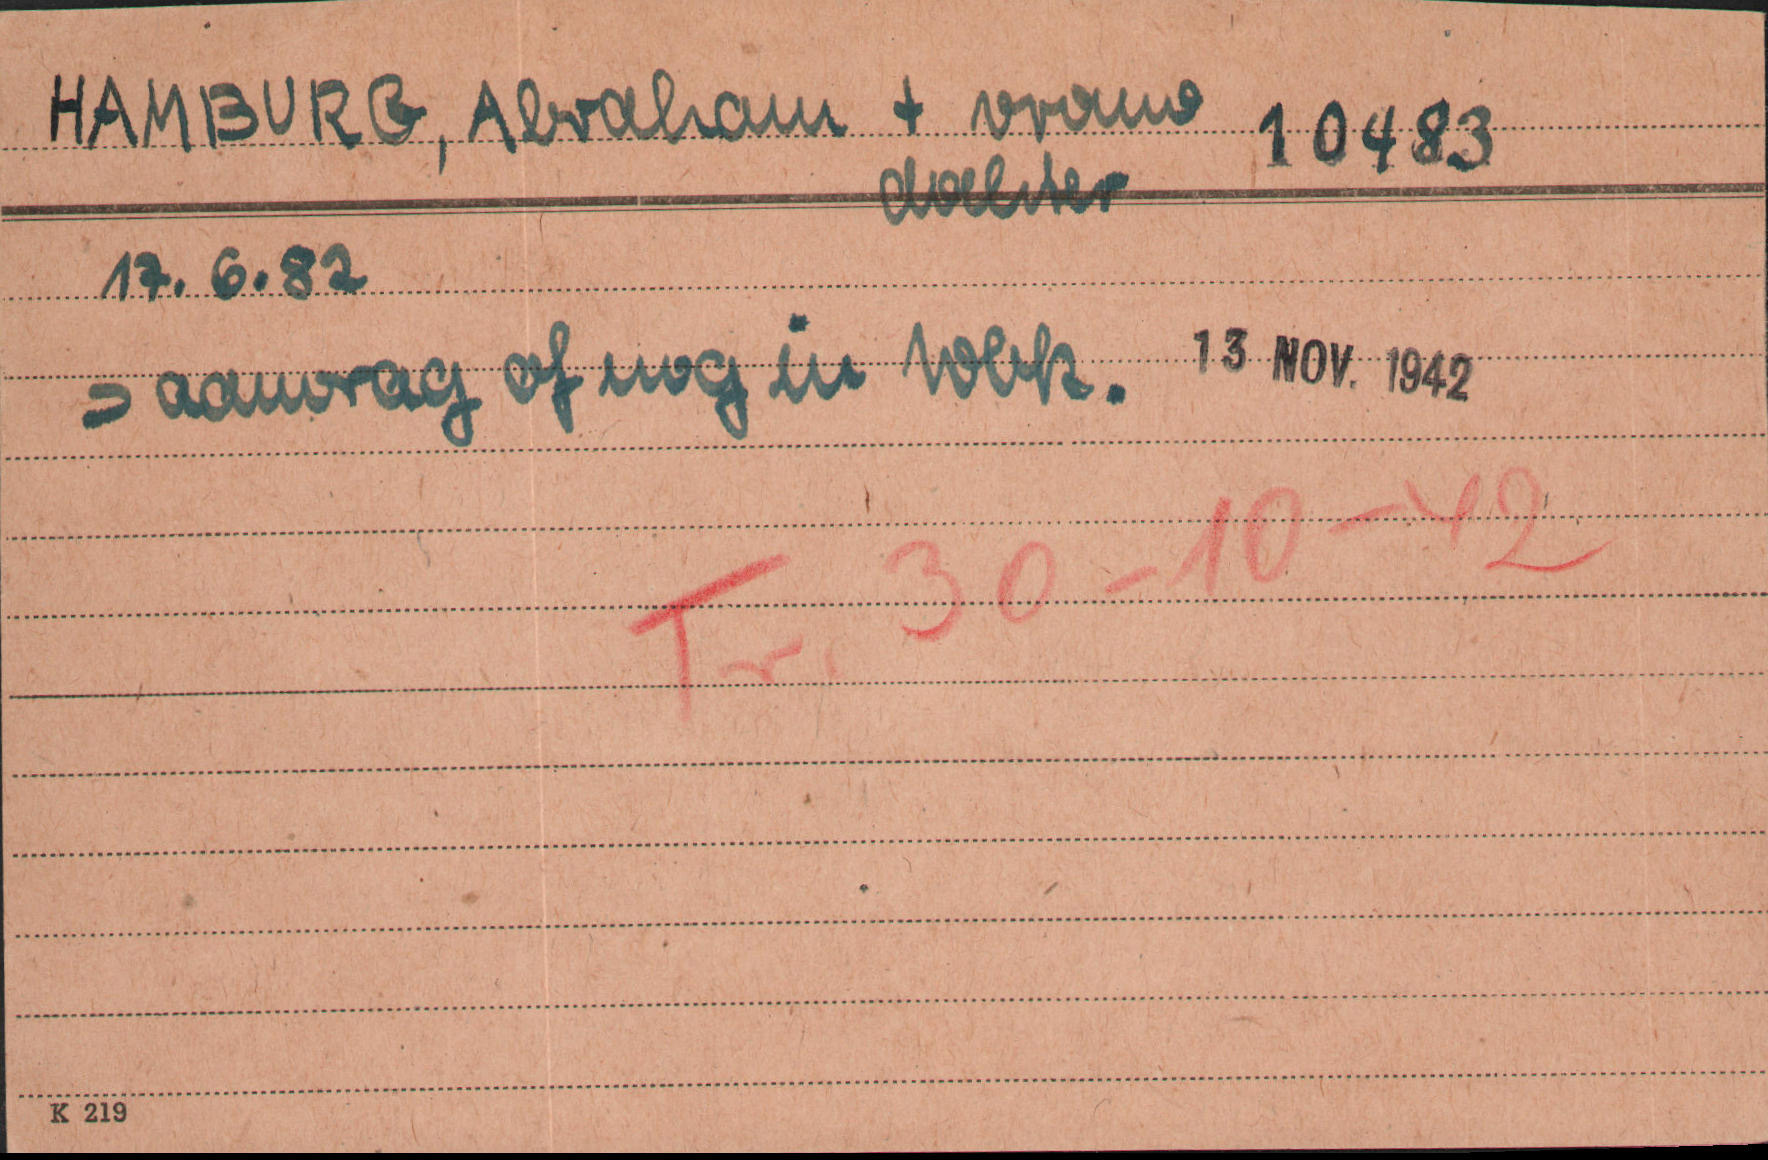 HAMBURG, Abraham + vrouw 10483
dochter
17.6.82
= aanvraag of nog in Wbk.
13 NOV. 1942
Tr. 30-10-42
K 219